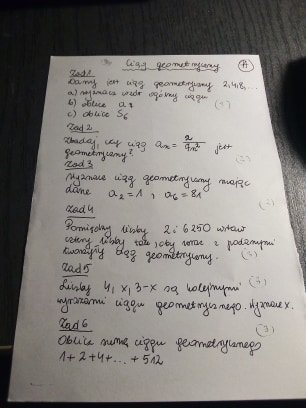 Ciąg geometryczny A
Zad 1
Dany jest ciąg geometryczny 2, 4, 8, ...
a) wyznacz wzór ogólny ciągu
b) oblicz a8
c) oblicz S6
Zad 2
Zbadaj, czy ciąg an = 2/7n² jest
geometryczny?
Zad 3
Wyznacz ciąg geometryczny mając
dane a2 = 1, a6 = 81
Zad 4
Pomiędzy liczby 2 i 6250 wstaw
cztery liczby tak, by wraz z podanymi
tworzyły ciąg geometryczny.
Zad 5
Liczby 4, x, 3-x są kolejnymi
wyrazami ciągu geometrycznego. Wyznacz x.
Zad 6
Oblicz sumę ciągu geometrycznego
1+2+4+...+512